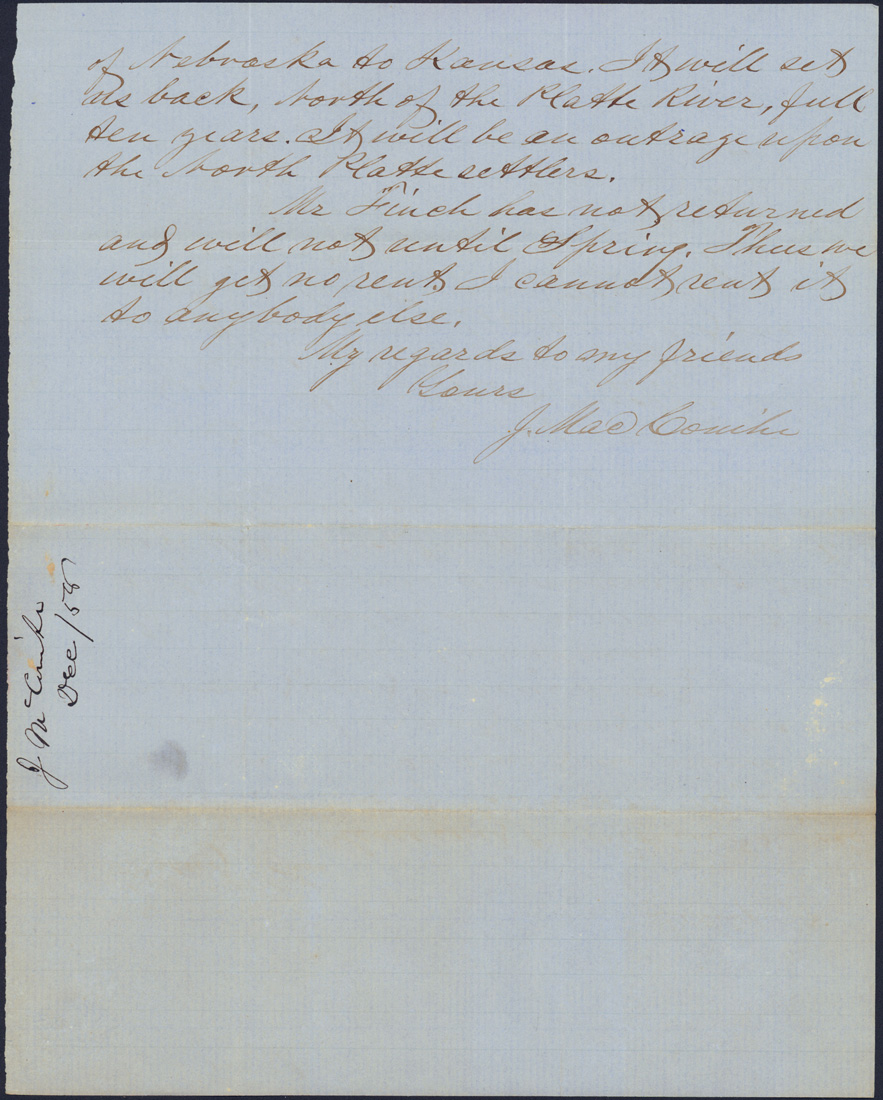 of Nebraska to Kansas. It will set
us back, North of the Platte River, full
ten years. It will be an outrage upon
the North Platte settlers.
Mr Finch has not returned
and will not until Spring. Thus we
will get no rent. I cannot rent it
to anybody else.
My regards to my friends
Yours
J. Mac Conihe
J McConihe
Dec /58